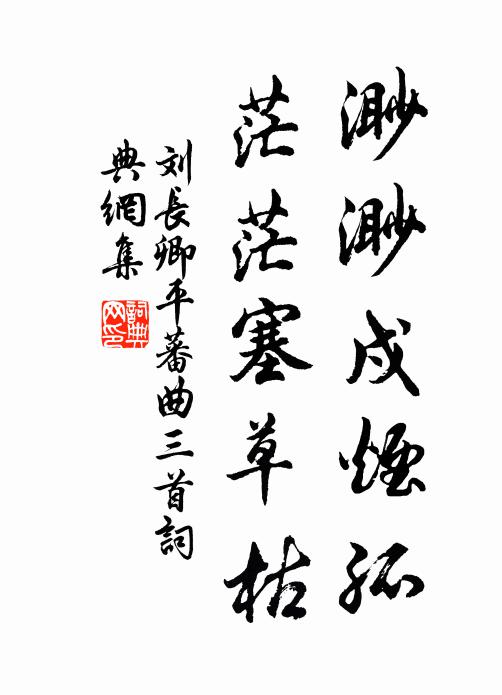 渺渺戍煙孤
茫茫塞草枯
刘長卿平蕃曲三首詞
典網集
詞典网印